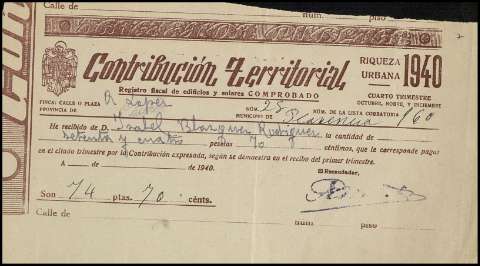 Calle de núm. piso
Contribución Territorial
RIQUEZA URBANA 1940
Registro fiscal de edificios y solares COMPROBADO
CUARTO TRIMESTRE
OCTUBRE, NOVBE. Y DICIEMBRE
FINCA: CALLE O PLAZA R Lopez NÚM. 25 NÚM. DE LA LISTA COBRATORIA 160
PROVINCIA DE MUNICIPIO DE Plasencia
He recibido de D. Isabel Blazquez Rodriguez la cantidad de
setenta y cuatro pesetas 70 céntimos, que le corresponde pagar
en el citado trimestre por la Contribución expresada, según se demuestra en el recibo del primer trimestre.
A de de 1940.
El Recaudador,
Son 74 ptas. 70 cénts.
Calle de núm. piso